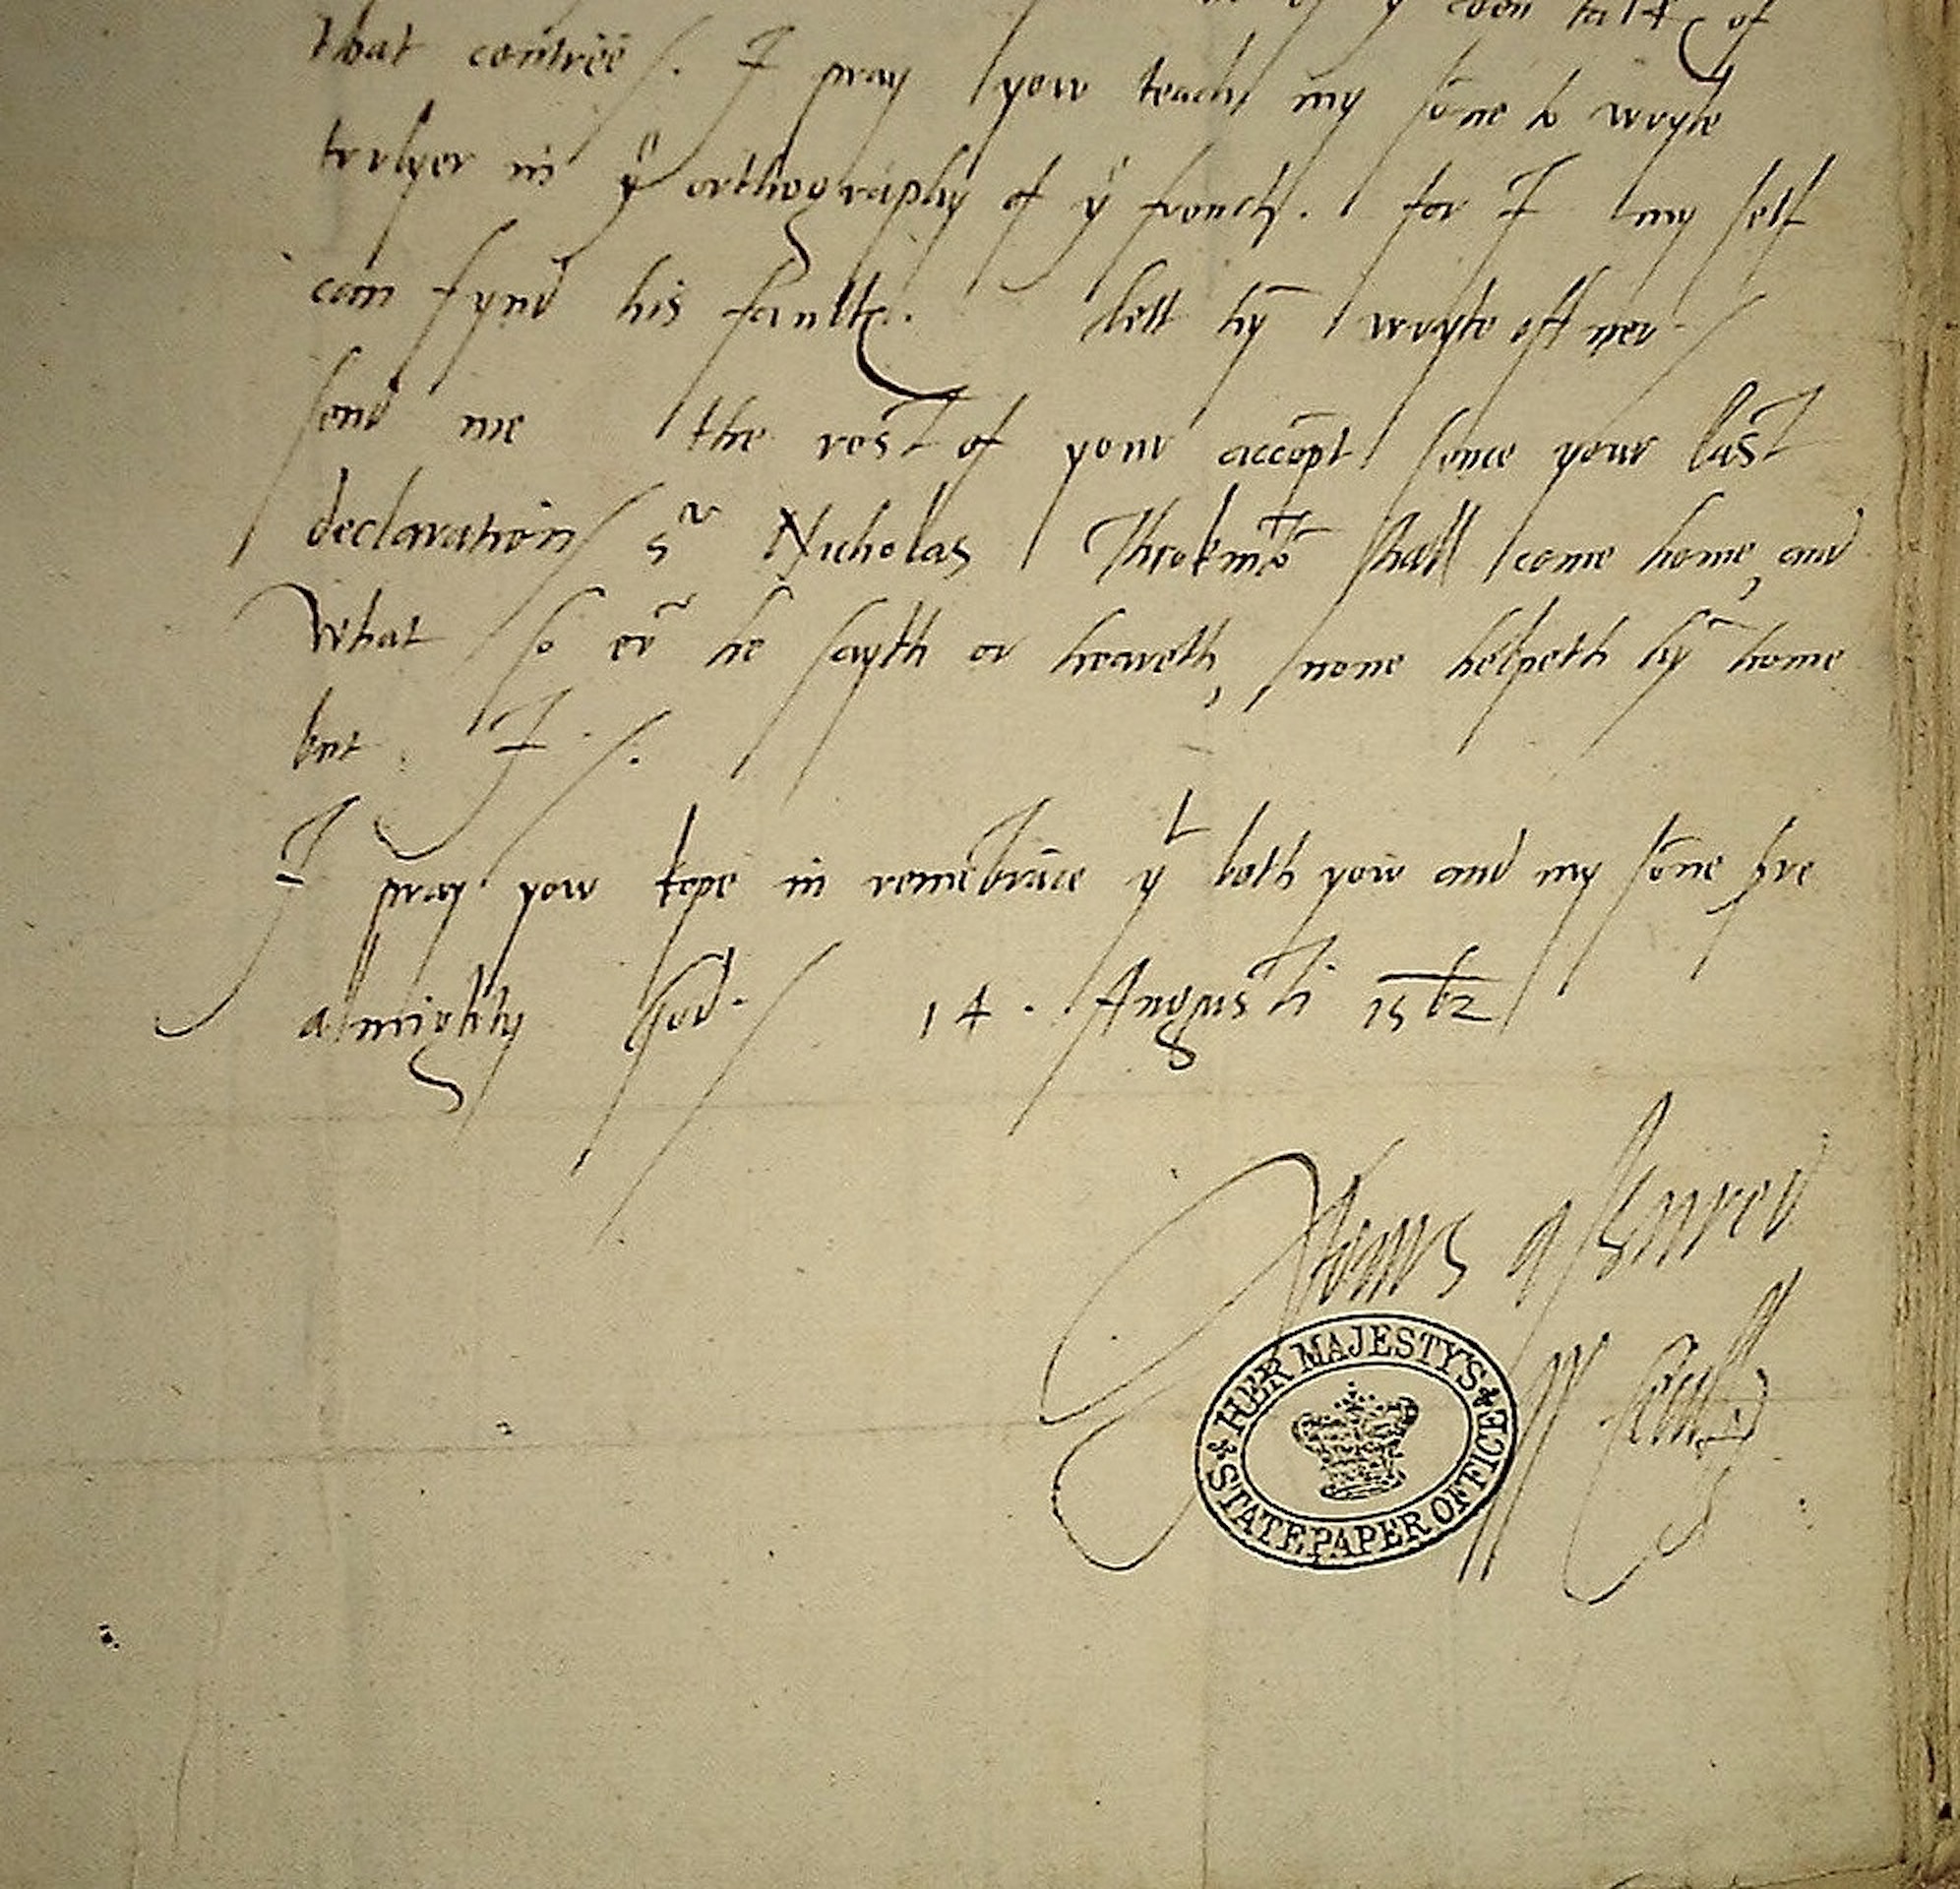 of yͤ co͞en talk of
that co͞ntree /. I pray yow teach my so͞ne to wryte
trulyer in yͤ orthography of yͤ french. for I my self
can fynd his faultꝭ. lett hy͞ wryte oftner /
send me the rest of your acco͞pt sence your last
declaration / Sʳ Nicholas Throkmo͞ shall come home, and
what so eu͞ he sayth or heareth, none helpeth hy͞ home
but I /.
I pray yow kepe in reme͞bra͞ce yᵗ both yow and my so͞ne s͞re
almighty God / 14. Augusti 1562
Yours assured
W. Cecill
HER MAJESTY'S
STATE PAPER OFFICE